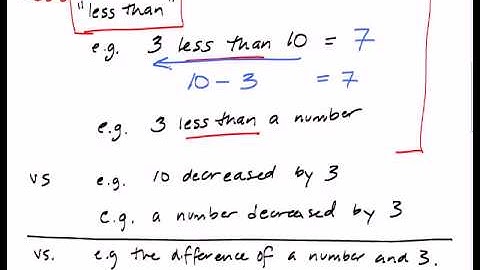 "less than"
e.g. 3 less than 10 = 7
10 - 3 = 7
e.g. 3 less than a number
vs e.g. 10 decreased by 3
e.g. a number decreased by 3
vs. e.g the difference of a number and 3.